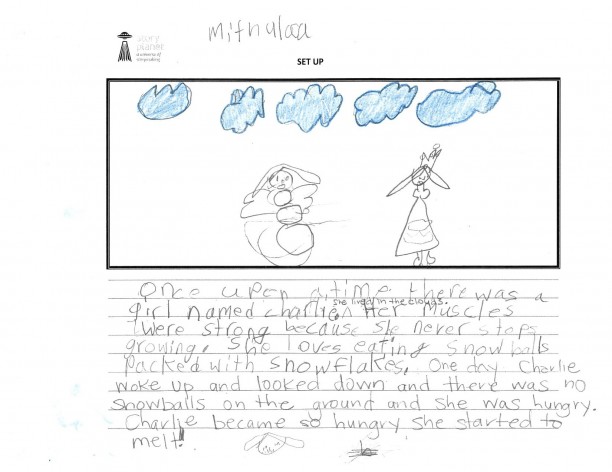 mithulaa
story
planet
a universe of
storymaking
SET UP
Once upon a time there was a
she lived in the clouds.
girl named Charlie Her Muscles
were strong because she never stops
growing. She loves eating snowballs
packed with snowflakes. One day Charlie
woke up and looked down and there was no
snowballs on the ground and she was hungry.
Charlie became so hungry she started to
melt!